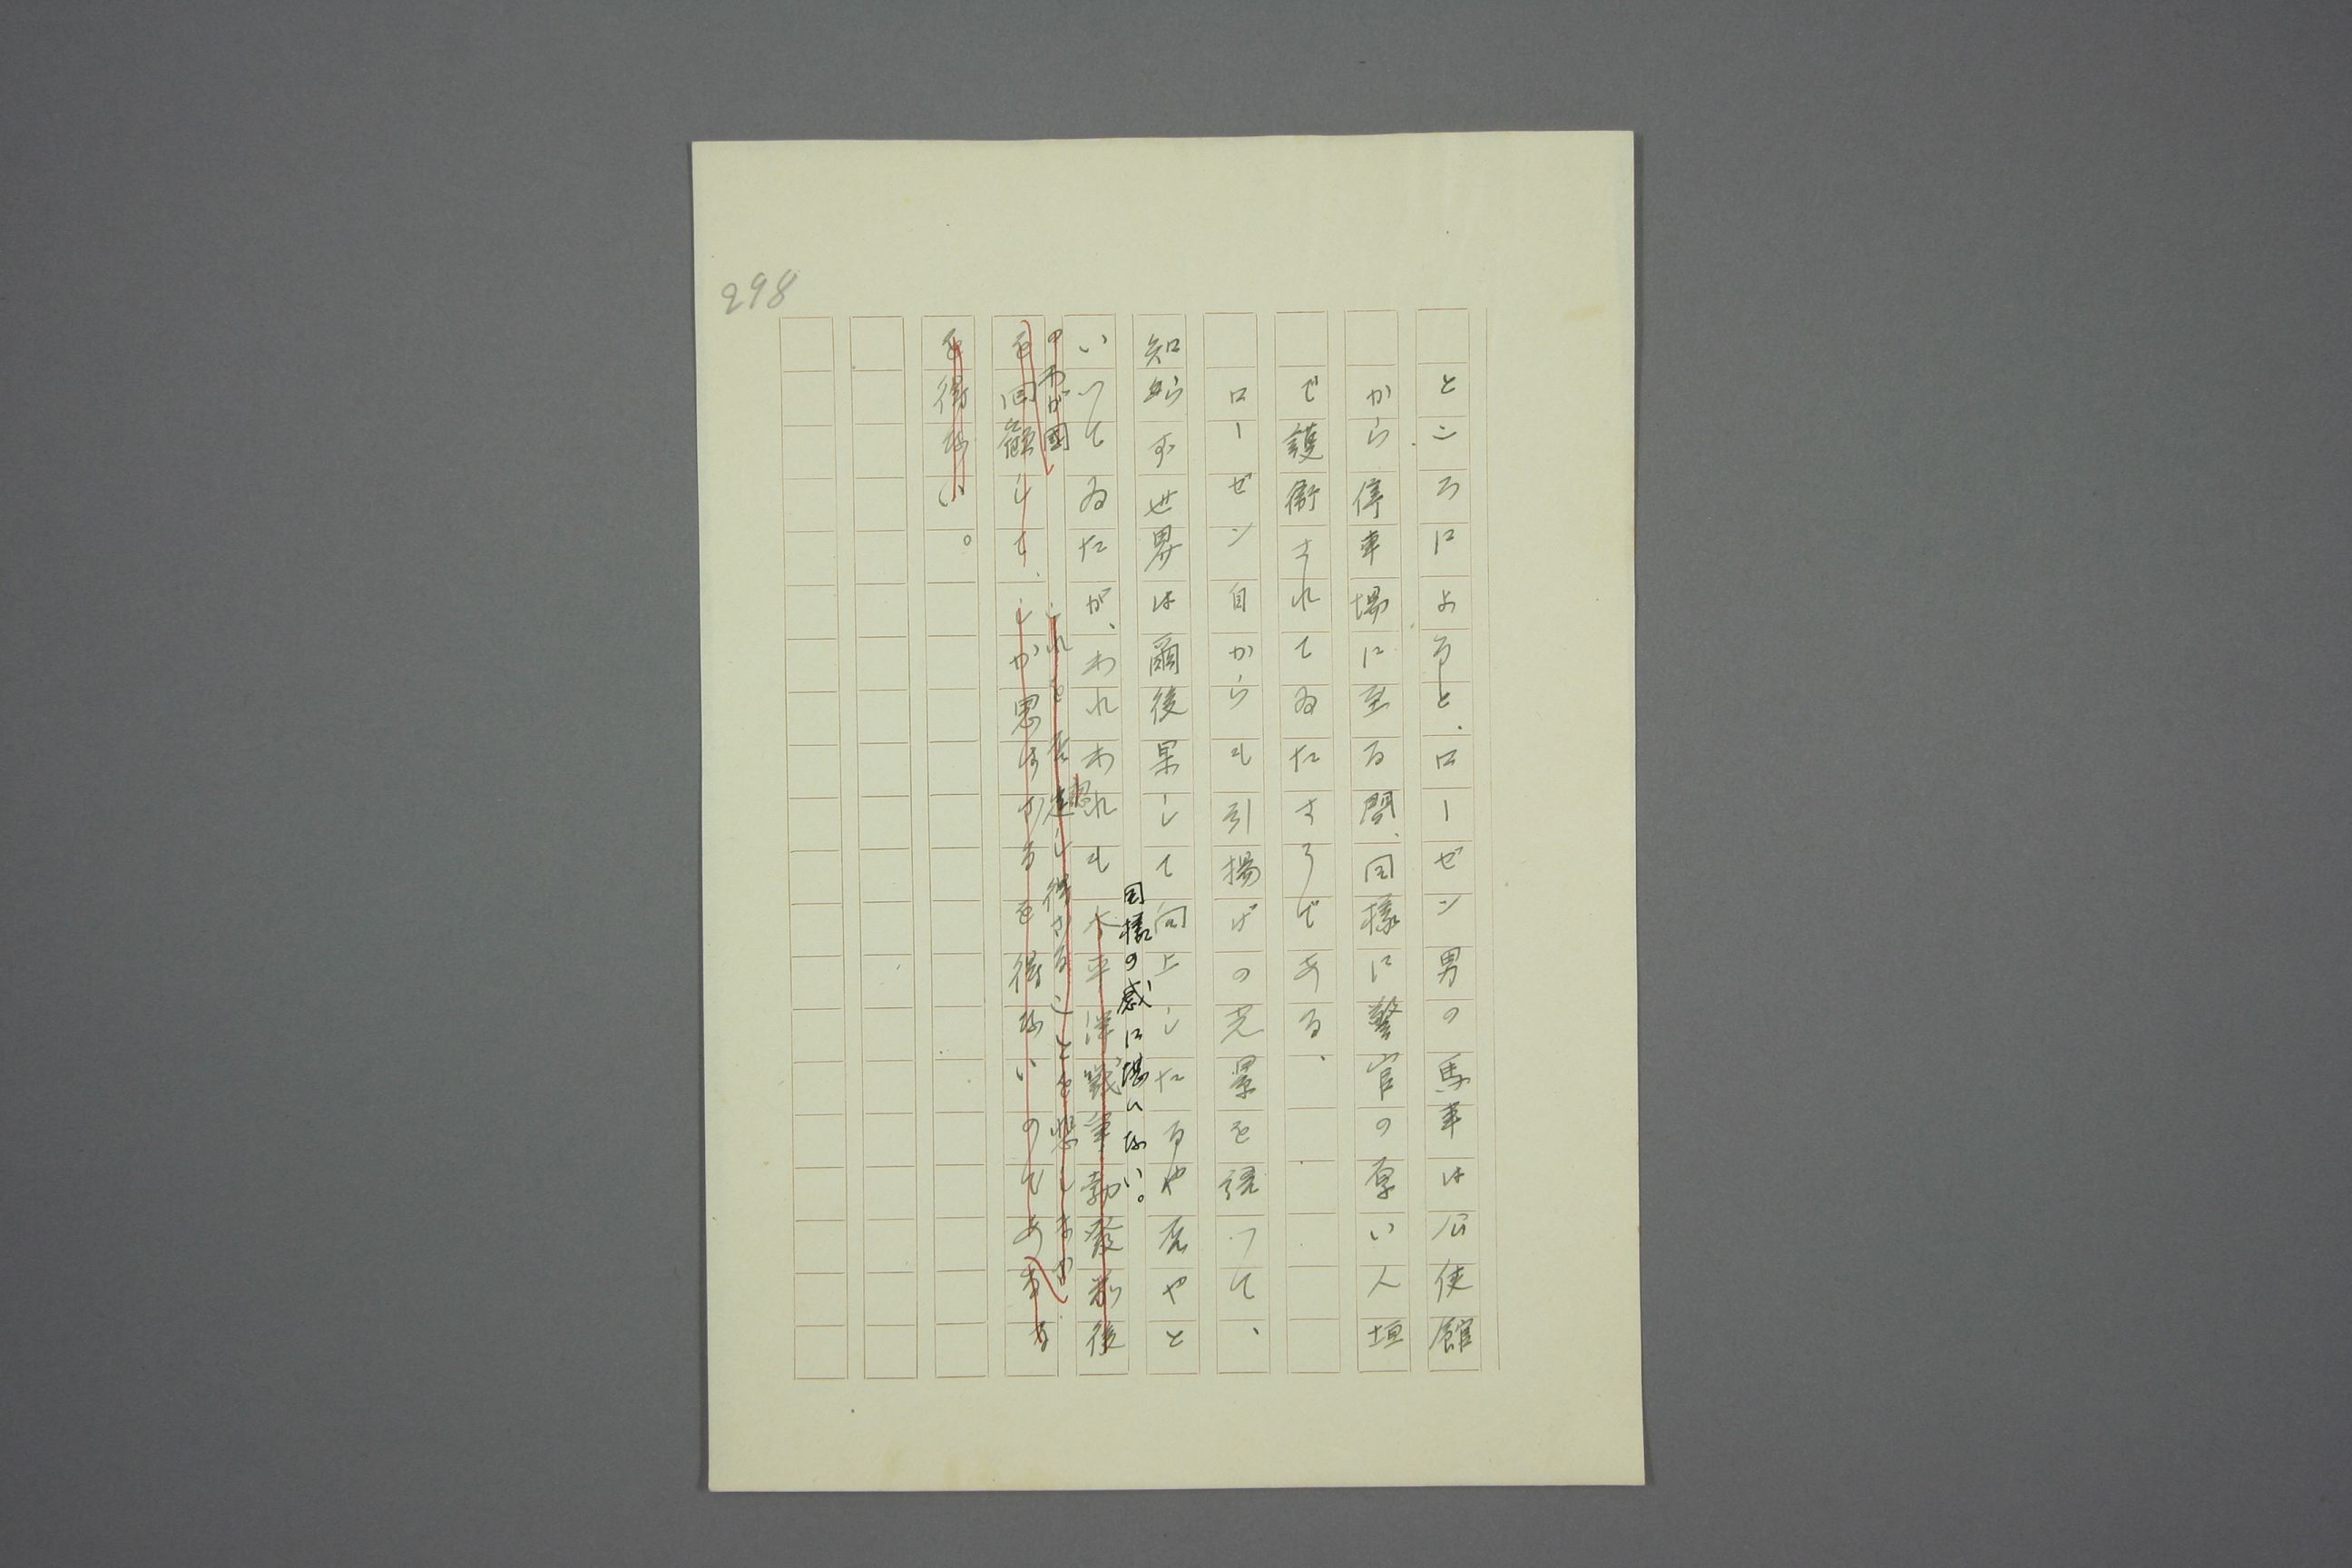 298
ところによると、ローゼン男の馬車は公使館
から停車場に至る間、同様に警官の厚い人垣
で護衛されてゐたさうである、
ローゼン自からも引揚げの光景を語つて、
知らず世界は爾後果して向上したるや否やと
同様の感に堪へない。
いつてゐたが、われわれも太平洋戦争勃發前後
のわが國
を回顧して、しか思はざるを得ないのである
を得ない。